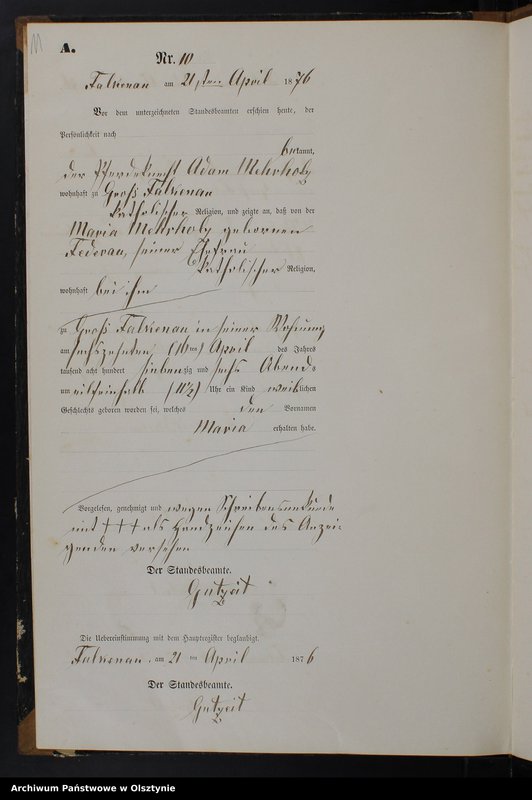 11
A.
Nr. 10
Falkenau am 21sten April 1876
Vor dem unterzeichneten Standesbeamten erschien heute, der
Persönlichkeit nach
bekannt,
der Pferdeknecht Adam
wohnhaft zu Groß Falkenau
katholischer Religion, und zeigte an, daß von der
Maria gebornen
seiner Ehefrau
katholischer Religion,
wohnhaft bei ihm
zu Groß Falkenau in seiner Wohnung
am sechszehnten (16ten) April des Jahres
tausend acht hundert siebenzig und sechs Abends
um eilfeinhalb (11½) Uhr ein Kind weiblichen
Geschlechts geboren worden sei, welches den Vornamen
Maria erhalten habe.
Vorgelesen, genehmigt und wegen Schreibensunkunde
mit ††† als Handzeichen des Anzei-
genden versehen
Der Standesbeamte.
Gutzeit
Die Uebereinstimmung mit dem Hauptregister beglaubigt.
Falkenau, am 21 ten April 1876
Der Standesbeamte.
Gutzeit
Archiwum Państwowe w Olsztynie